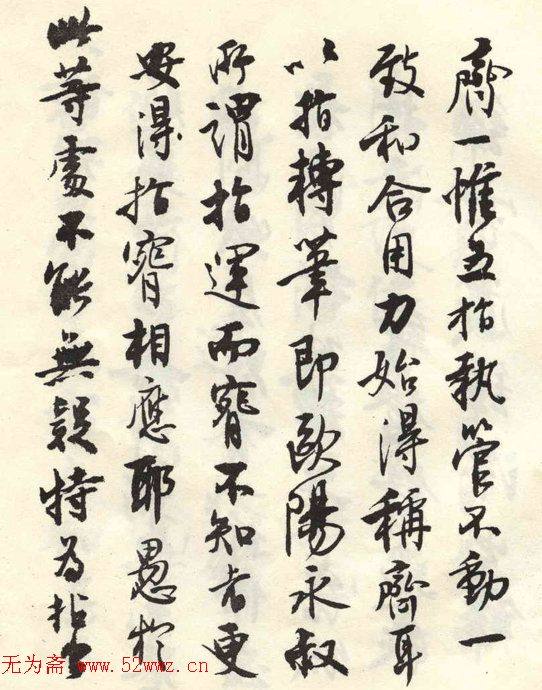 齊一惟五指執管不動一
致和合用力始得稱齊耳
以指轉筆即歐陽永叔
所謂指運而窅不知者更
安得指窅相應耶愚於
此等處不能無疑特為拈出
无为斋 www.52wwz.cn